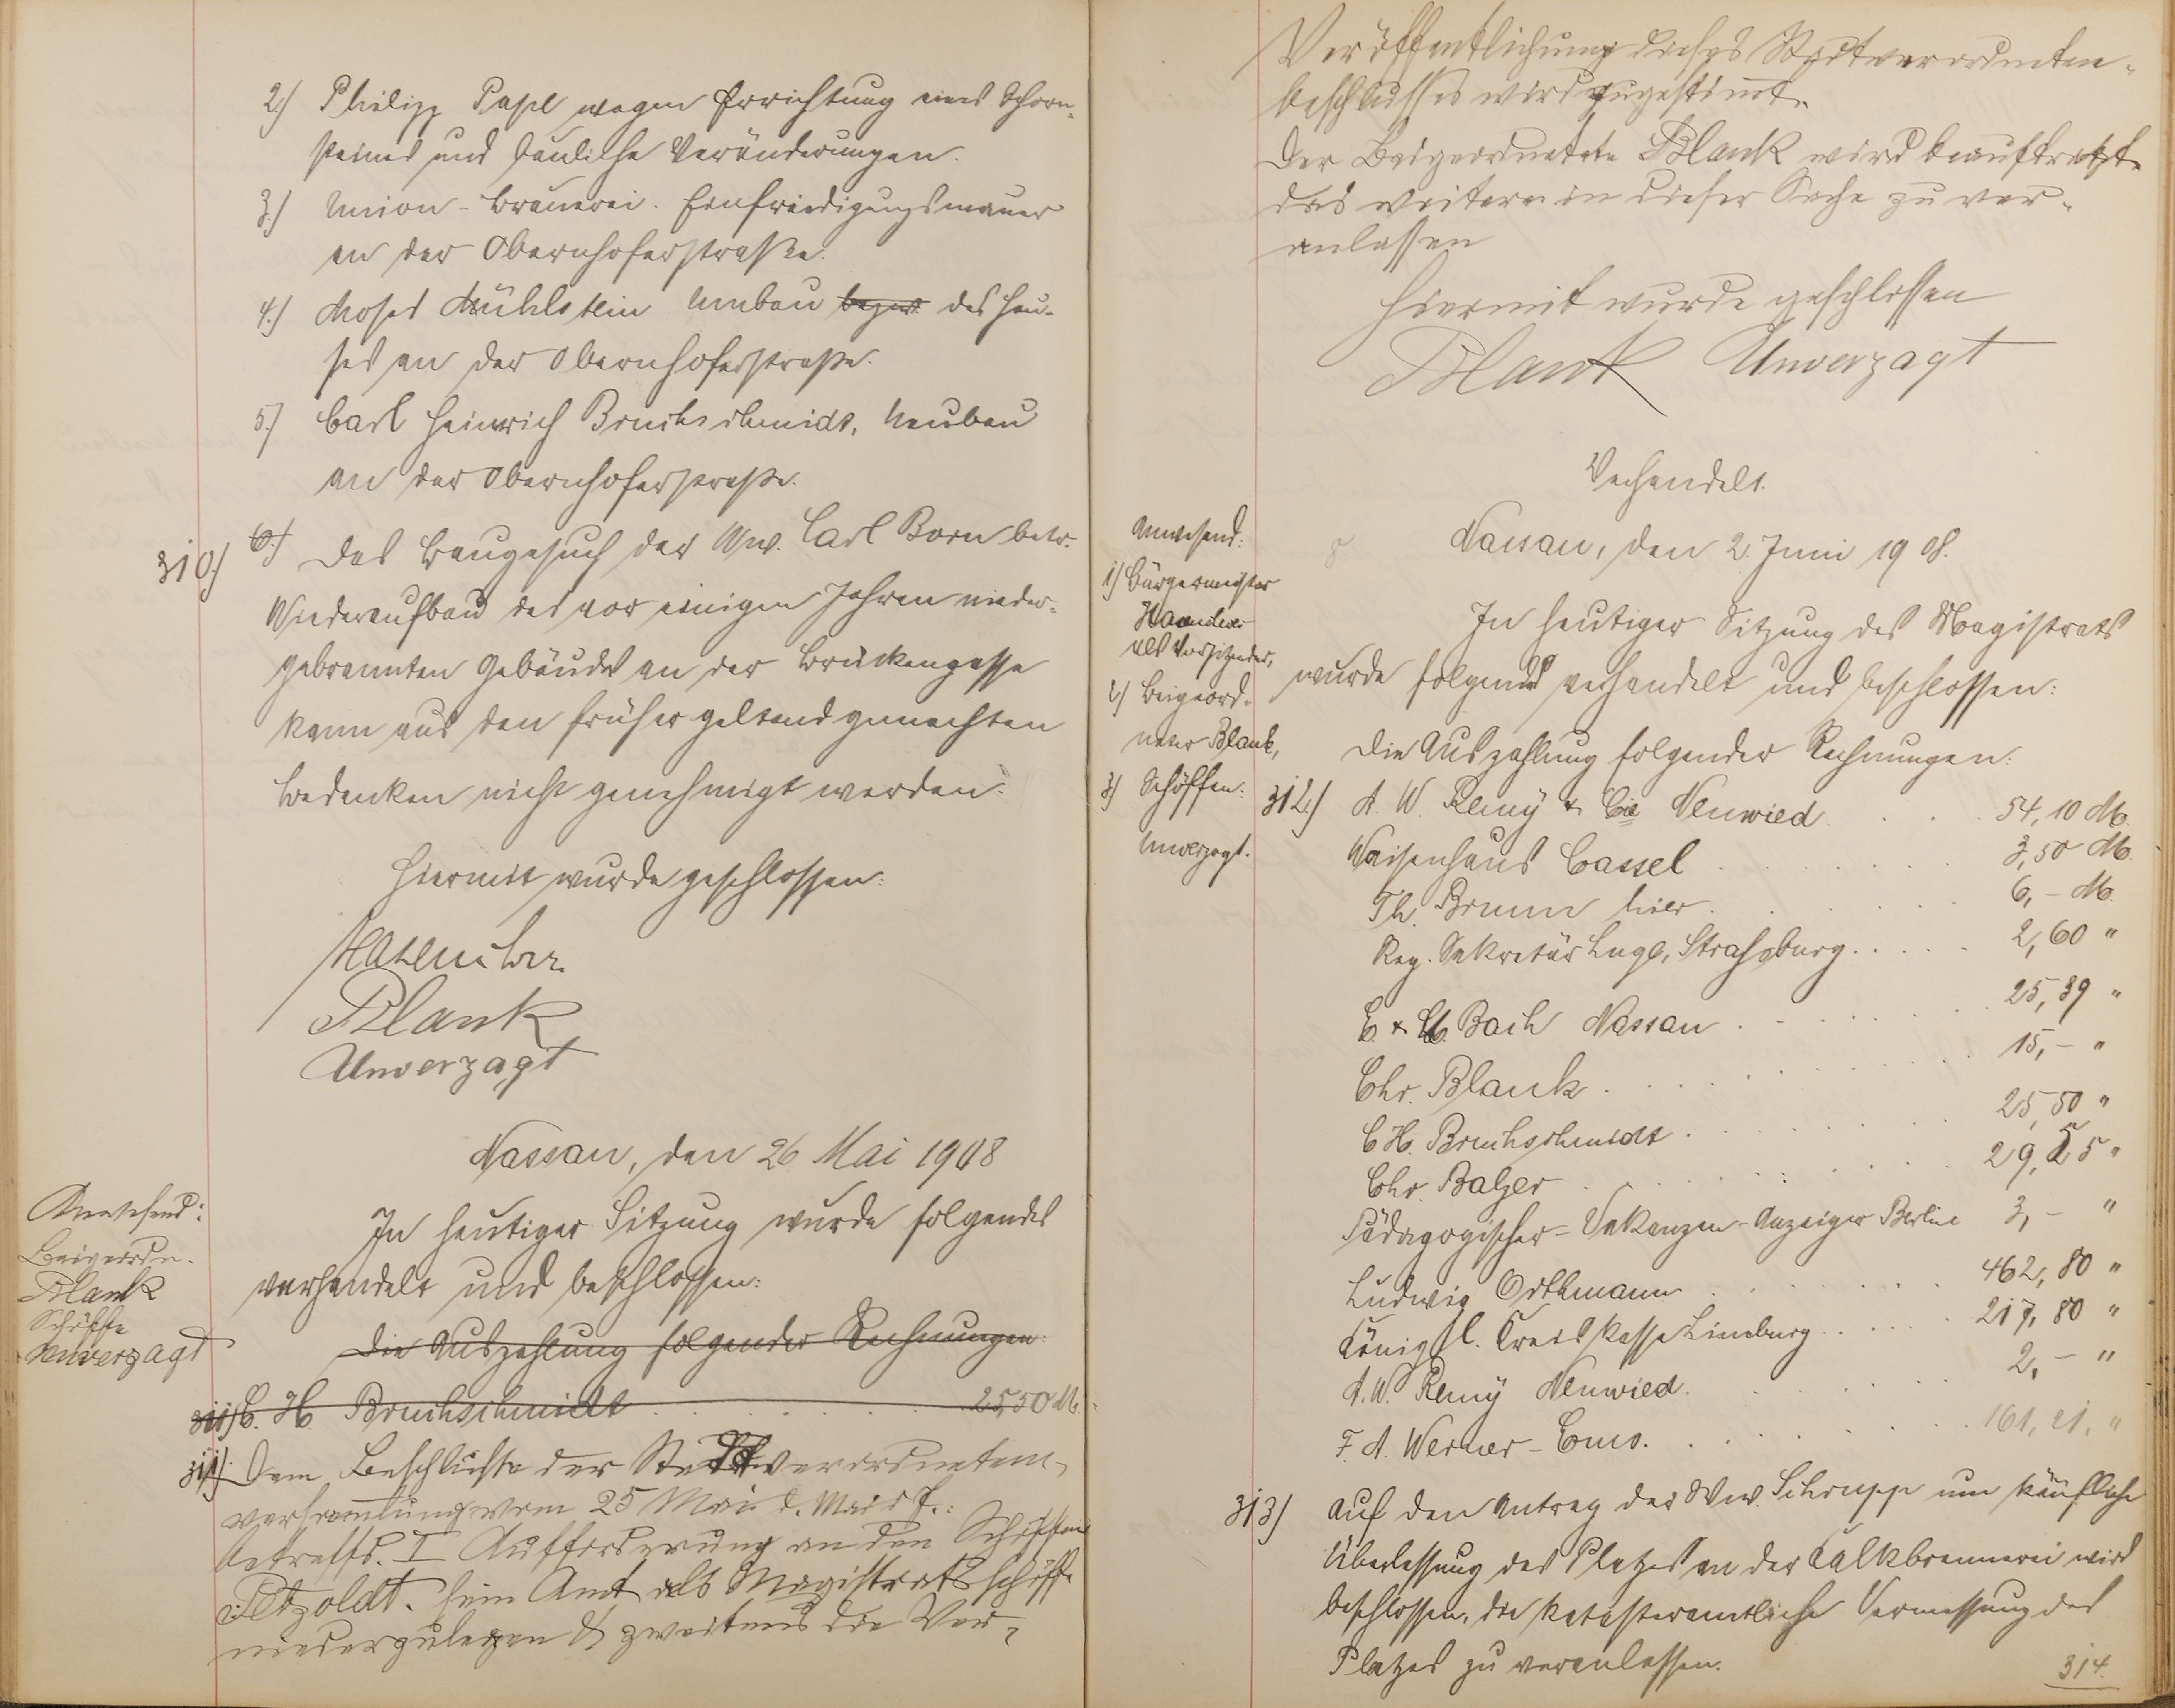 2.) Philipp Pape wegen Errichtung eines Schorn-
steines und bauliche Veränderungen.
3.) Union-Brauerei. Einfriedigungsmauer
an der Obernhoferstraße.
4.) Moses Mühlstein Umbau des Hau-
ses an der Obernhoferstraße.
5.) Carl Heinrich Bruchschmidt, Neubau
an der Obernhoferstraße.
310.) 6.) Das Baugesuch der Ww. Carl Born betr.
Wiederaufbau des vor einigen Jahren nieder-
gebrannten Gebäudes an der Brückengasse
kann aus den früher geltend gemachten
Bedenken nicht genehmigt werden.
Hiermit wurde geschlossen:
Hasenclever
Blank
Unverzagt
Nassau, den 26 Mai 1908
Anwesend:
Beigeordn.
Blank
Schöffe
Unverzagt
In heutiger Sitzung wurde folgendes
verhandelt und beschlossen:
Die Auszahlung folgender Rechnungen:
311) C. H. Bruchschmidt . . . . . . 25,50 M.
311) Dem Beschlusse der Stadtverordneten-
versammlung vom 25 Mai d.
betreffd. I Aufforderung an den Schöffen
Petzoldt. sein Amt als Magistratsschöffe
niederzulegen & zweitens die Ver-
Veröffentlichung dieses Stadtverordneten-
beschlusses wird zugestimt.
Der Beigeordnete Blank wird beauftragt
das weitere in dieser Sache zu ver-
anlassen
Hiermit wurde geschlossen
Blank Unverzagt
Verhandelt.
Nassau, den 2. Juni 1908.
Anwesend:
1) Bürgermeister
Hasenclever
als Vorsitzender,
2) Beigeord-
neter Blank,
3) Schöffen:
Unverzagt.
In heutiger Sitzung des Magistrats
wurde folgendes verhandelt und beschlossen:
Die Auszahlung folgender Rechnungen:
312.) A. W. Remy & Cie Neuwied . . . 54,10 M.
Waisenhaus Cassel . . . . . 3,50 M.
Th. Brumm hier . . . . . 6,- M.
Reg. Sekretär Luge, Strassburg . . . . . 2,60 "
C. & M. Bach Nassau . . . . . 25,39 "
Chr. Blank . . . . . 15,- "
C. H. Bruchschmidt . . . . . 25,50 "
Chr. Balzer . . . . . 29,25 "
Pädagogischer-Vakanzen-Anzeiger Berlin 3,- "
Ludwig Orthmann . . . . . 462,80 "
Königl. Kreiskasse Limburg . . . . . 217,80 "
A. W. Remy Neuwied . . . . . 2,- "
F. A. Werner-Ems. . . . . . 161,21 "
313) Auf den Antrag der Ww. Schrupp um käufliche
Überlassung des Platzes an der Kalkbrennerei wird
beschlossen, die katasteramtliche Vermessung des
Platzes zu veranlassen.
314.